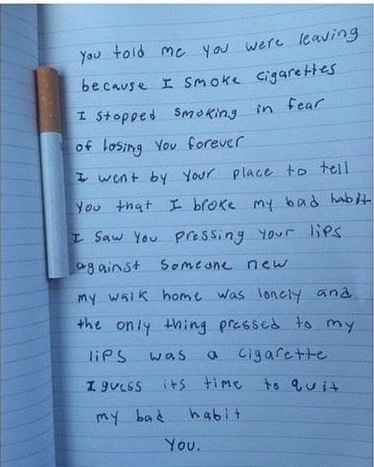 you told me you were leaving
because I smoke cigarettes
I stopped smoking in fear
of losing you forever
I went by your place to tell
you that I broke my bad habit
I saw you pressing your lips
against someone new
my walk home was lonely and
the only thing pressed to my
lips was a cigarette
I guess its time to quit
my bad habit
you.